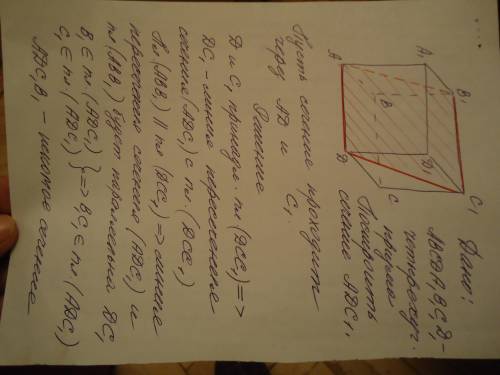 Дано:
ABCDA₁B₁C₁D₁ -
четырехуг.
призма
Построить
сечение ADC₁,
A₁
B₁
C₁
A
B
D₁
D
C
Пусть сечение проходит
через AD и C₁.
Решение
D и C₁ принадл. пл (DCC₁) =>
DC₁ - линия пересечения
сечения (ADC₁) с пл. (DCC₁)
Пл (ABB₁) || пл (DCC₁) => линия
пересечения сечения (ADC₁) и
пл (ABB₁) будет параллельна DC₁
B₁ ∈ пл (ADC₁)
C₁ ∈ пл (ADC₁) } => B₁C₁ ∈ пл (ADC₁)
ADC₁B₁ - искомое сечение